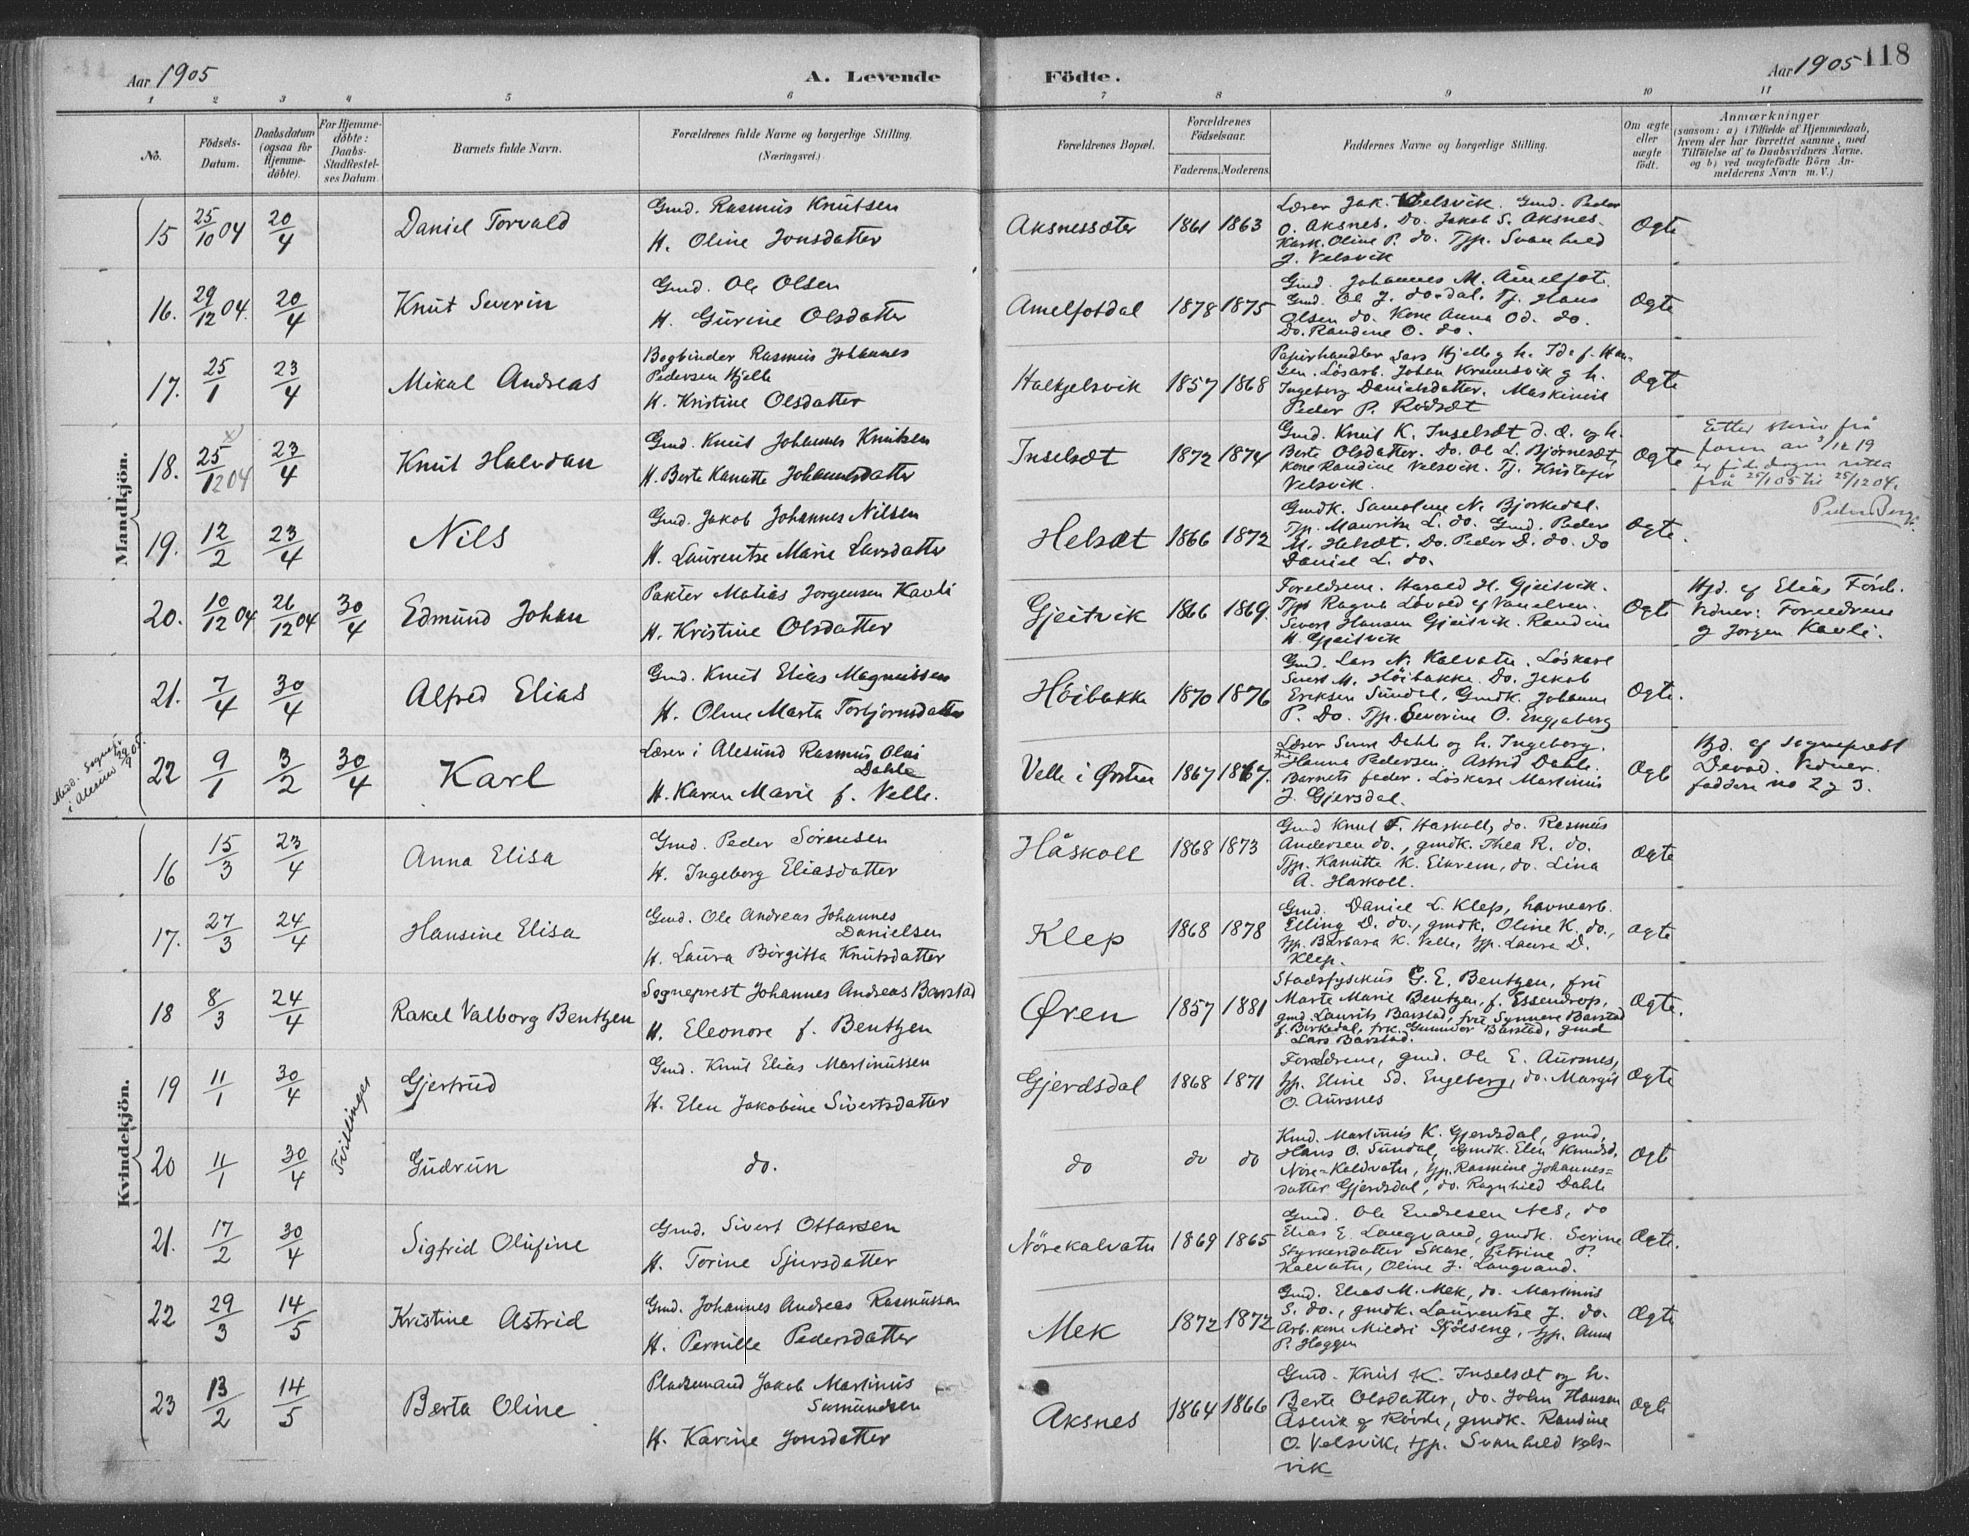 Aar 1905
A. Levende
Fødte.
Aar 1905
118
1 2 3 4 5 6 7 8 9 10 11
No.
Fødsels-
Datum.
Daabsdatum
(ogsaa for
Hjemme-
døbte).
For Hjemme-
døbte:
Daabs-
Stadfæstel-
ses Datum.
Barnets fulde Navn.
Forældrenes fulde Navne og borgerlige Stilling.
(Næringsvei.)
Forældrenes Bopæl.
Forældrenes
Fødselsaar.
Faderens. Moderens.
Faddernes Navne og borgerlige Stilling.
Om ægte
eller
uægte
født.
Anmærkninger
(saasom: a) i Tilfælde af Hjemmedaab,
hvem der har forrettet samme, med
Tilføielse af to Daabsvidners Navne.
og b) ved uægtefødte Børn An-
melderens Navn m. V.)
Mandkjøn.
15 25/10 04 20/4 Daniel Torvald
Gmd. Rasmus Knutsen
H. Oline Jonsdatter
Aksnessæter 1861 1863
Lærer Jak. Velsvik. Gmd. Peder
O. Aksnes. Do. Jakob S. Aksnes.
Kark. Oline P. do. Tjp. Svanhild
J. Velsvik
Ægte
16. 29/12 04. 20/4 Knut Severin
Gmd. Ole Olsen
H. Gurine Olsdatter
Amelfotdal 1878 1875
Gmd. Johannes M. Åmelfot.
Gmd. Ol J. do-dal. Tj. Hans
Olsen do. Kone Anna Od. do.
Do. Randine O. do.
Ægte
17. 25/1 23/4 Mikal Andreas
Bogbinder Rasmus Johannes
Pedersen Hjelle
H. Kristine Olsdatter
Halkjelsvik 1857 1868
Papirhandler Lars Hjelle g h. Ida f. Han-
sen. Løsarb. Johan Krumsvik g h.
Ingeborg Danielsdatter. Maskinist
Peder P. Rødsæt
Ægte
18. x) 25/12 04 23/4 Knut Halvdan
Gmd. Knut Johannes Knutsen
H. Berte Kanutte Johannesdatter
Inselsæt 1872 1874
Gmd. Knut K. Inselsæt d. æ. og h.
Berte Olsdatter. Do. Ole L. Bjørnesæt,
Kone Randine Velsvik. Tj. Kristofer
Velsvik.
Ægte
Etter skriv frå
forn av 3/12 19
er fødedagen retta
frå 25/1 05 til 25/12 04.
Peder Berg
19. 12/2 23/4 Nils
Gmd. Jakob Johannes Nilsen
H. Laurentse Marie Larsdatter
Helsæt 1866 1872
Gmdk. Samoline N. Bjorkedal.
Tjp. Mauritse L. do. Gmd. Peder
M. Helsæt. Do. Peder D. do. do
Daniel L. do.
Ægte.
20. 10/12 04 26/12 04 30/4 Edmund Johan
Pakter Matias Jorgensen Kavli
H. Kristine Olsdatter
Gjeitvik 1866 1869.
Foreldrene. Harald H. Gjeitvik.
Tjp. Ragna Løvold af Vanelven.
Sivert Hansen Gjeitvik. Randine
H. Gjeitvik
Ægte
Hjd. af Elias Förd.
Vidner: Foreldrene
g Jorgen Kavli.
21. 7/4 30/4 Alfred Elias
Gmd. Knut Elias Magnussen
H. Oline Marta Torbjornsdatter
Höibakke 1870 1876
Gmd. Lars N. Kalvatn. Löskarl
Sivert M. Höibakke. Do. Jakob
Eriksen Sundal. Gmdk. Johanne
P. Do. Tjp. Severine O. Engjaberg
Ægte.
Medd. Sognepr.
i Alesund 29/9 05.
22 9/1 3/2 30/4 Karl
Lærer i Alesund Rasmus Olai
Dahle
H. Karen Marie f. Velle.
Velle i Ørsten 1867 1867.
Lærer Sivert Dahle og h. Ingeborg.
Fru Hanna Pedersen. Astrid Dahle.
Barnets fader. Löskare Martinus
J. Gjersdal.
Ægte
Hjd. af sogneprest
Devold. Vidner.
faddere no 2 g 3.
Kvindekjøn.
16 15/3 23/4 Anna Elisa
Gmd. Peder Sörensen
H. Ingeborg Eliasdatter
Håskoll 1868 1873
Gmd Knut F. Haskoll, do. Rasmus
Andersen do., gmdk. Thea R. do.
Tjp. Kanutte K. Eikrem, do. Lina
A. Haskoll.
Ægte
17. 27/3 24/4 Hansine Elisa
Gmd. Ole Andreas Johannes
Danielsen
H. Laura Birgitta Knutsdatter
Klep 1868 1878
Gmd. Daniel L. Klep, havnearb.
Elling D. do., gmdk. Oline K. do.,
tjp. Barbara K. Velle, tjp. Laura D.
Klep.
ægte
18 8/3 24/4 Rakel Valborg Bentzen
Sogneprest Johannes Andreas Barstad
H. Eleonore f. Bentzen
Øren 1857 1881
Stadsfysikus G. E. Bentzen, fru
Marte Marie Bentzen, f. Essendrop,
gmd. Laurits Barstad, fru Synnøve Barstad
f. Birkedal, frk. Gunnvor Barstad, gmd
Lars Barstad.
Ægte.
19 11/1 30/4 Gjertrud
Tvillinger
Gmd. Knut Elias Martinussen
H. Elen Jakobine Sivertsdatter
Gjerdsdal 1868 1871
Forældrene, gmd. Ole E. Aursnes,
tjp. Eline Sd. Engeberg, do. Margit
O. Aursnes
Ægte
20 11/1 30/4 Gudrun
do.
do do do
Kmd. Martinus K. Gjerdsdal, gmd.
Hans O. Sundal, Gmdk. Elen Knudsd.
Nöre-Kaldvatn, tjp. Rasmine Johannes=
datter Gjerdsdal, do. Ragnhild Dahle
Ægte
21. 17/2 30/4 Sigfrid Olufine
Gmd. Sivert Ottarsen
H. Torine Sjursdatter
Nörekalvatn 1869 1865
Gmd. Ole Endresen Nes, do
Elias E. Langvand, gmdk. Serine
Styrkersdatter Skare, Petrine P.
Kalvatn, Oline J. Langvand.
Ægte.
22 29/3 14/5 Kristine Astrid
Gmd. Johannes Andreas Rasmussen
H. Pernille Pedersdatter
Mek 1872 1872
Gmd. Elias M. Mek, do. Martinus
S. do., gmdk. Laurentse J. do.
Arb. kone Mildri Sjölseng, tjp. Anna
P. Hoggen
Ægte
23 13/2 14/5 Berta Oline
Pladsemand Jakob Martinus
Samundsen
H. Karine Jonsdatter
Aksnes 1864 1866
Gmd. Knut K. Inselsæt og h.
Berte Olsdatter, do. John Hansen
Aasevik af Rövde, gmdk. Randine
O. Velsvik, tjp. Svanhild Vels-
vik
Ægte